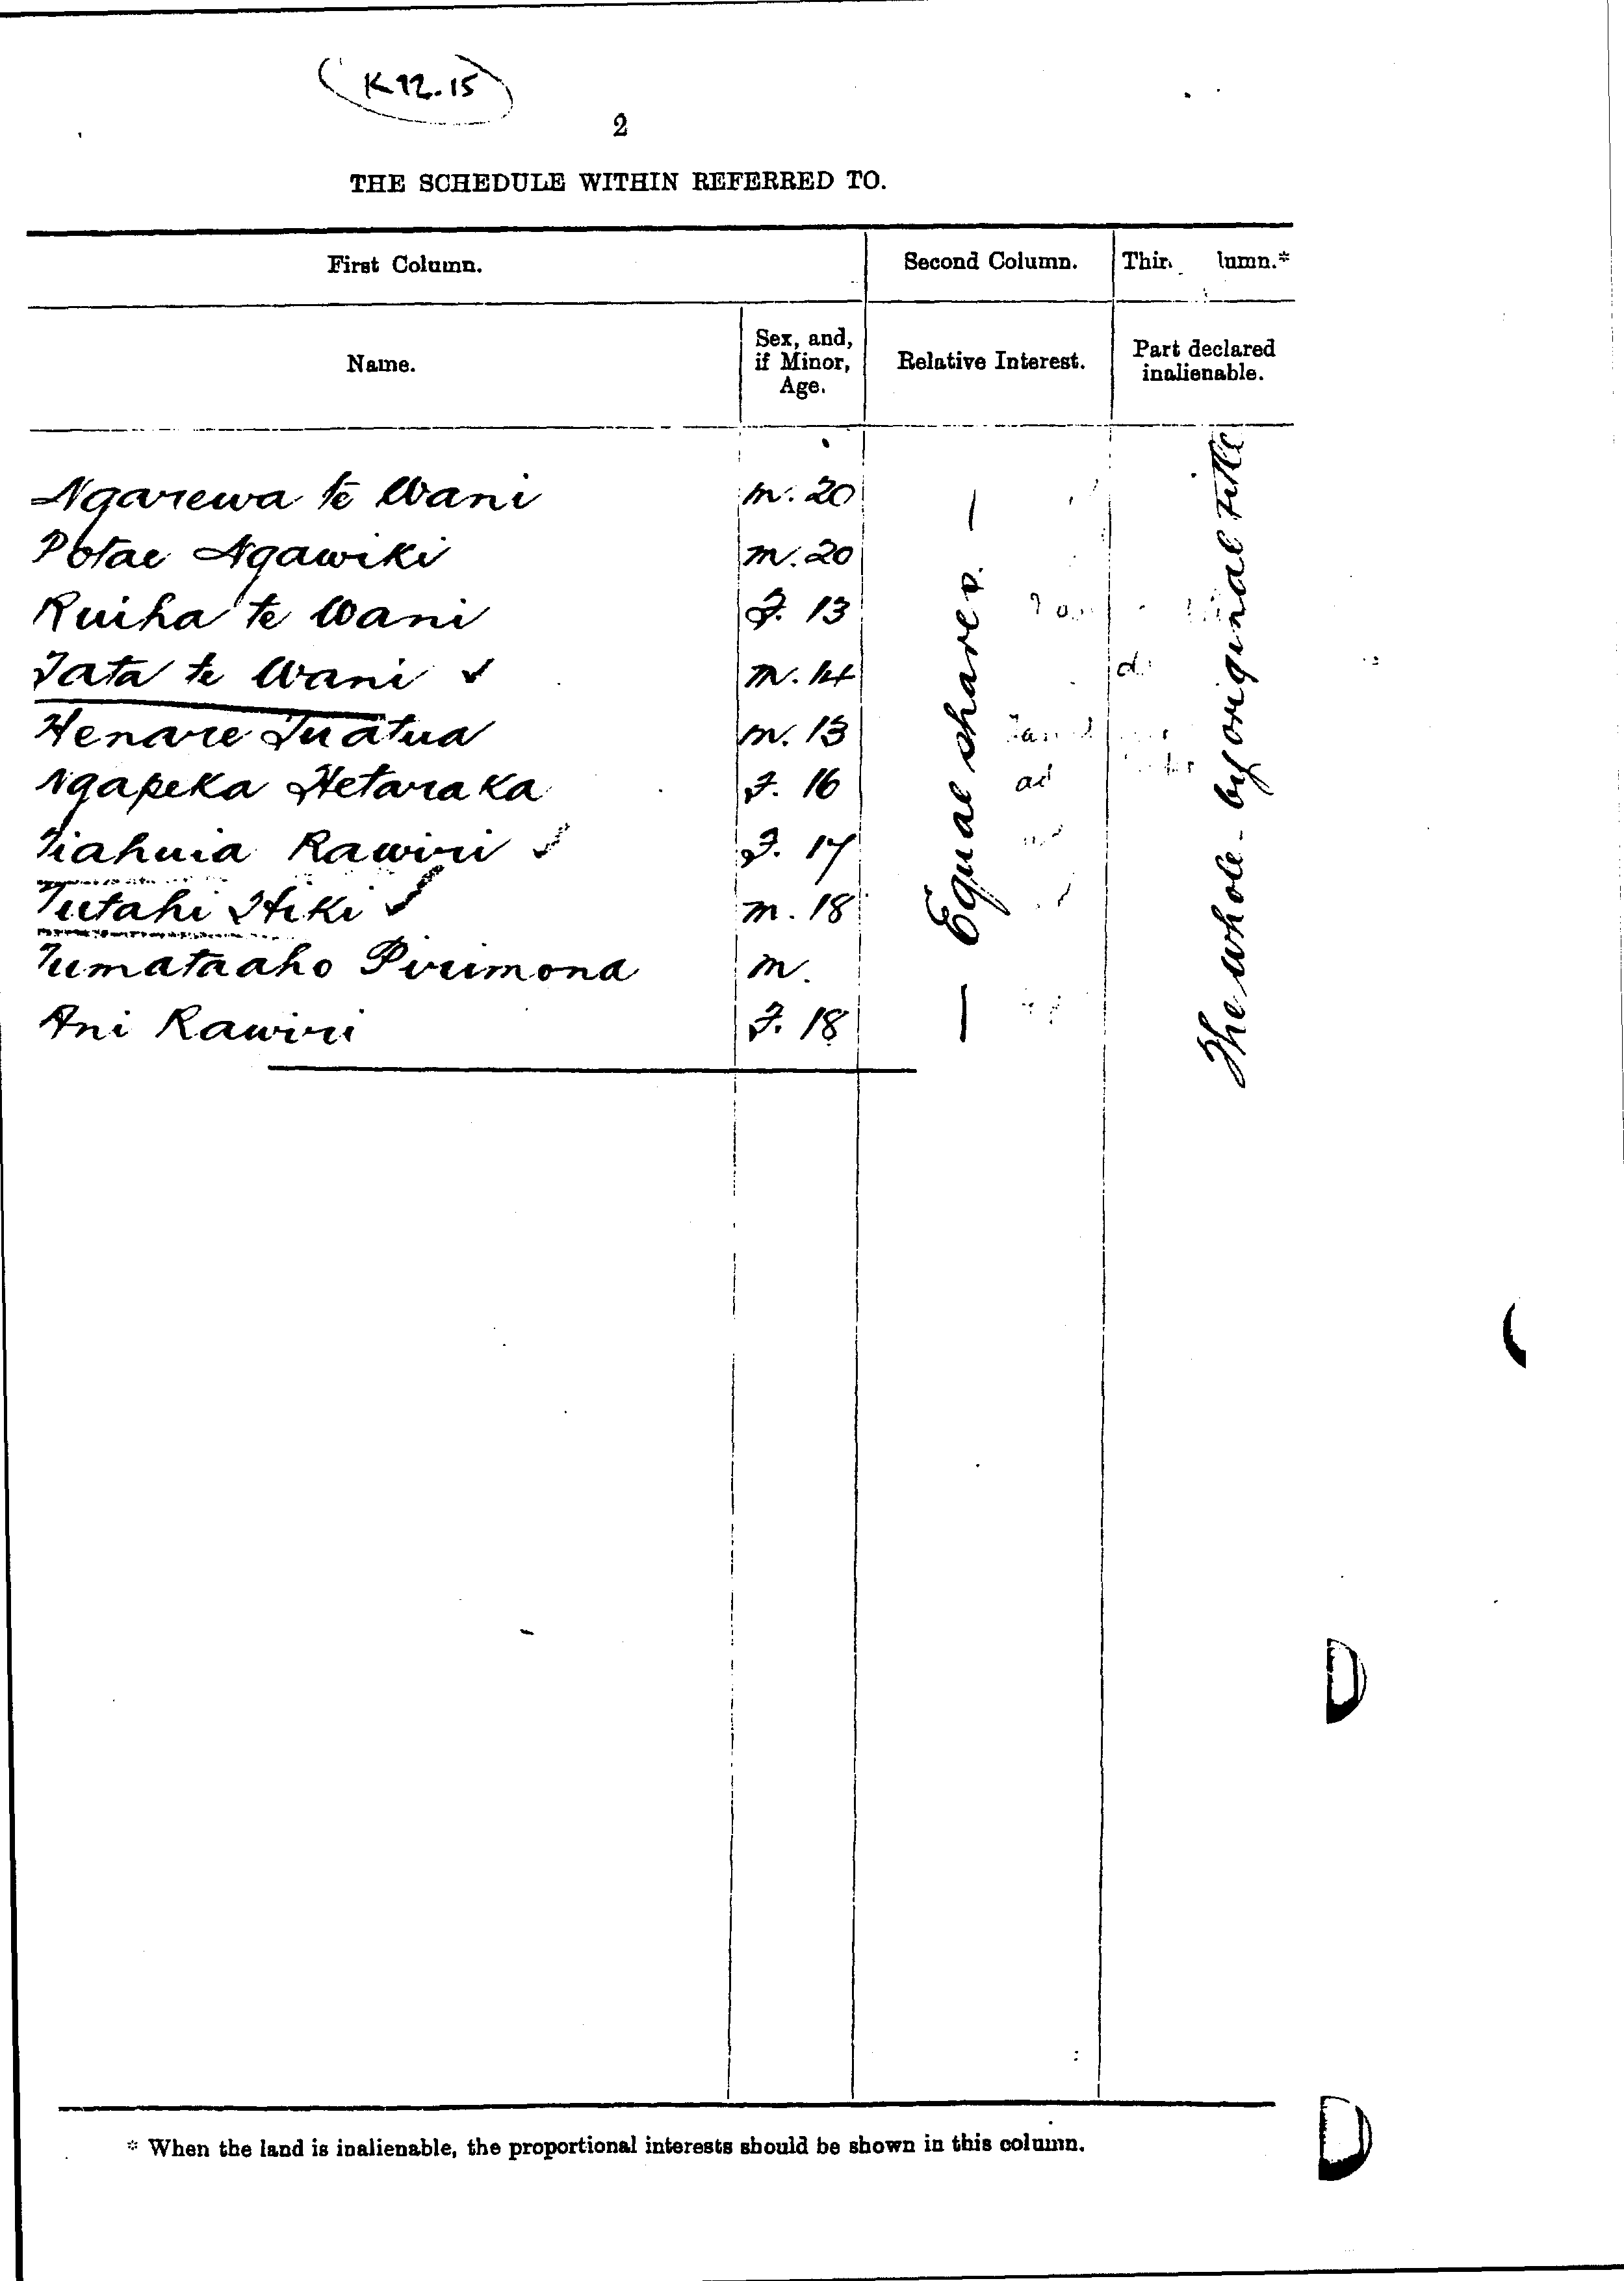 K92.15
2
THE SCHEDULE WITHIN REFERRED TO.
First Column. Second Column. lumn.*
Name. Sex, and, if Minor, Age. Relative Interest. Part declared inalienable.
Ngarewa te Wani m. 20
Potae Ngawiki m. 20
Ruiha te Wani F. 13
Tata te Wani ✓ m. 14
Henare Tuatua m. 13
Ngapeka Hetaraka F. 16
Tiahuia Rawiri ✓ F. 17
Tutahi Hiki ✓ m. 18
Tumataaho Pirimona m.
Ani Rawiri F. 18
— Equal shares. —
The whole - by original title
* When the land is inalienable, the proportional interests should be shown in this column.